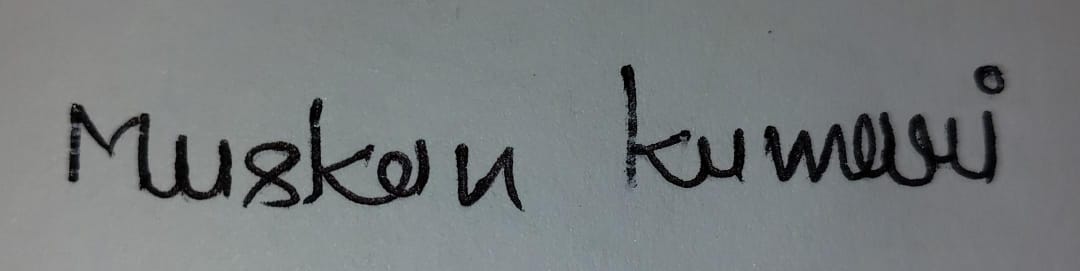 Muskan kumari